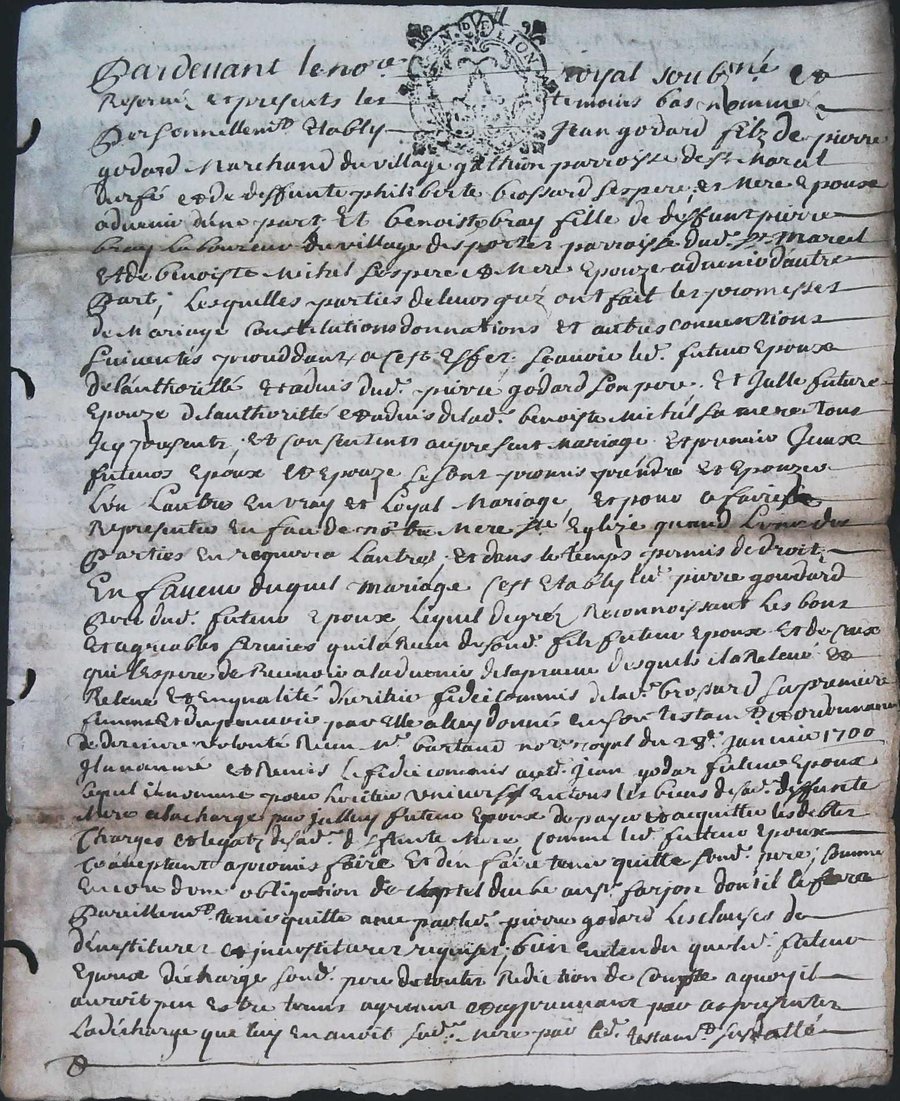 GEN DE LION
Pardevant le no.re royal soubné et
Reservé et presents les temoins bas nommés
Personnellem.t Etably Jean godard filz de pierre
godard Marchand du village gathion parroisse de st Marcel
durfé et de deffunte philiberte brossard ses pere et Mere Epoux
advenir d'une part Et benoiste bray fille de deffunt pierre
bray laboureur du village des portes parroisse dud. st Marcel
Et de benoiste Michel ses pere et Mere Epouze advenir d'autre
Part, Lesquelles parties de leurs gréz ont fait les promesses
de Mariage Constitutions donnations et autres conventions
Suivantes proceddant a cest Effet, scavoir led. futeur Epoux
de l'authorité et advis dud. pierre godard son pere, Et Jcelle future
Epouze de lauthoritté et advis de lad. benoiste Michel sa mere tous
Jcy presents, et Consentents au present Mariage Et premier Jceux
futeurs Epoux et Epouze se sont promis prendre et Epouzer
L'un Lautre En vray et Loyal Mariage, et pour ce faire se
Representer En face de n.re Mere ste Eglize quand L'une des
Parties En requerra Lautre, et dans le temps permis de droit,
En faveur duquel mariage s'est Etably led. pierre goudard
Pere dud. futeur Epoux, Lequel de gréz Reconnoissant Les bons
Et agreables services quil a Receu de sond. filz futeur Epoux Et de Ceux
quil Espere de Recevoir a ladvenir de la preuve desquels il a Relevé et
Releve Et En qualité d'heritier fideicommis de lad. brossard sa premiere
femme Et du pouvoir par Elle a luy donné en son testam.t et ordonnance
de derniere volonté Receu M.e bartaud no.re royal du 28.e Janvier 1700
Jl a nommé et Remis Le fideicommis aud. Jean godar futeur Epoux
Lequel il nomme pour heritier universel En tous les biens de sad. deffunte
Mere a la charge par Jcelluy futeur Epoux de payer et acquitter les debtes
Charges et legatz de sad. deffunte Mere Comme led. futeur Epoux
acceptant a promis faire Et d'en faire tenir quitte sond. pere, Comme
Encore d'une obligation de cheptel due au sr farjon dont il le fera
Pareillem.t tenir quitte avec par led. pierre godard Les clauses de
devestiture et investiture requises, bien entendu que led. futeur
Epoux décharge sond. pere de toutte Reddition de Compte a quoy il
auroit peu Estre tenus agreant et approuvant par ces presentes
La décharge que luy En avoit sad. Mere par led. testam.t